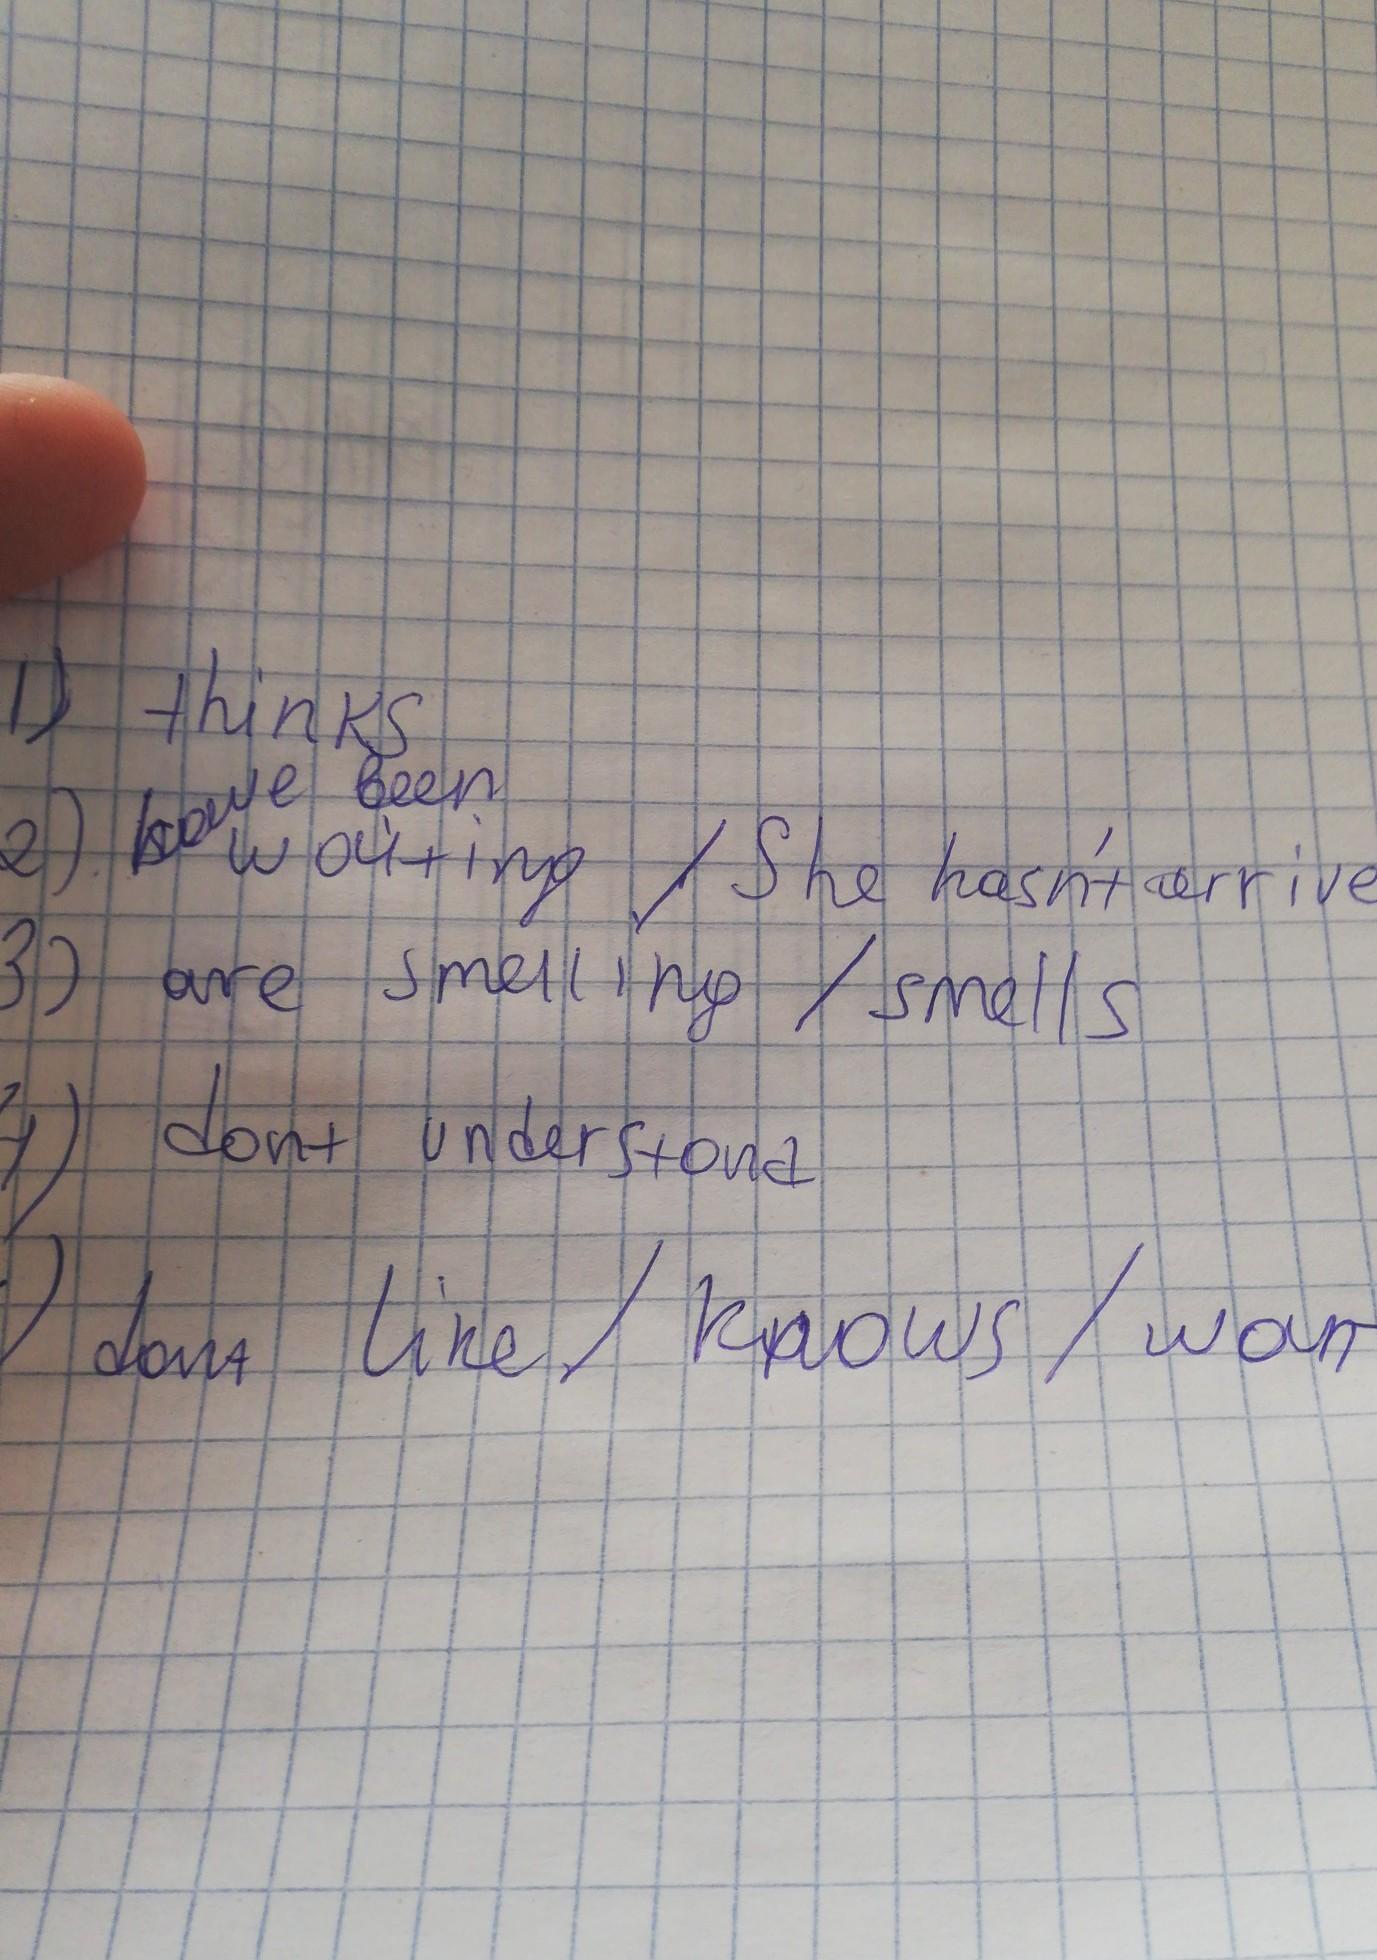 1) thinks
have been
2) waiting / She hasn't arrive
3) are smelling / smells
4) dont understand
) dont like / knows / wan